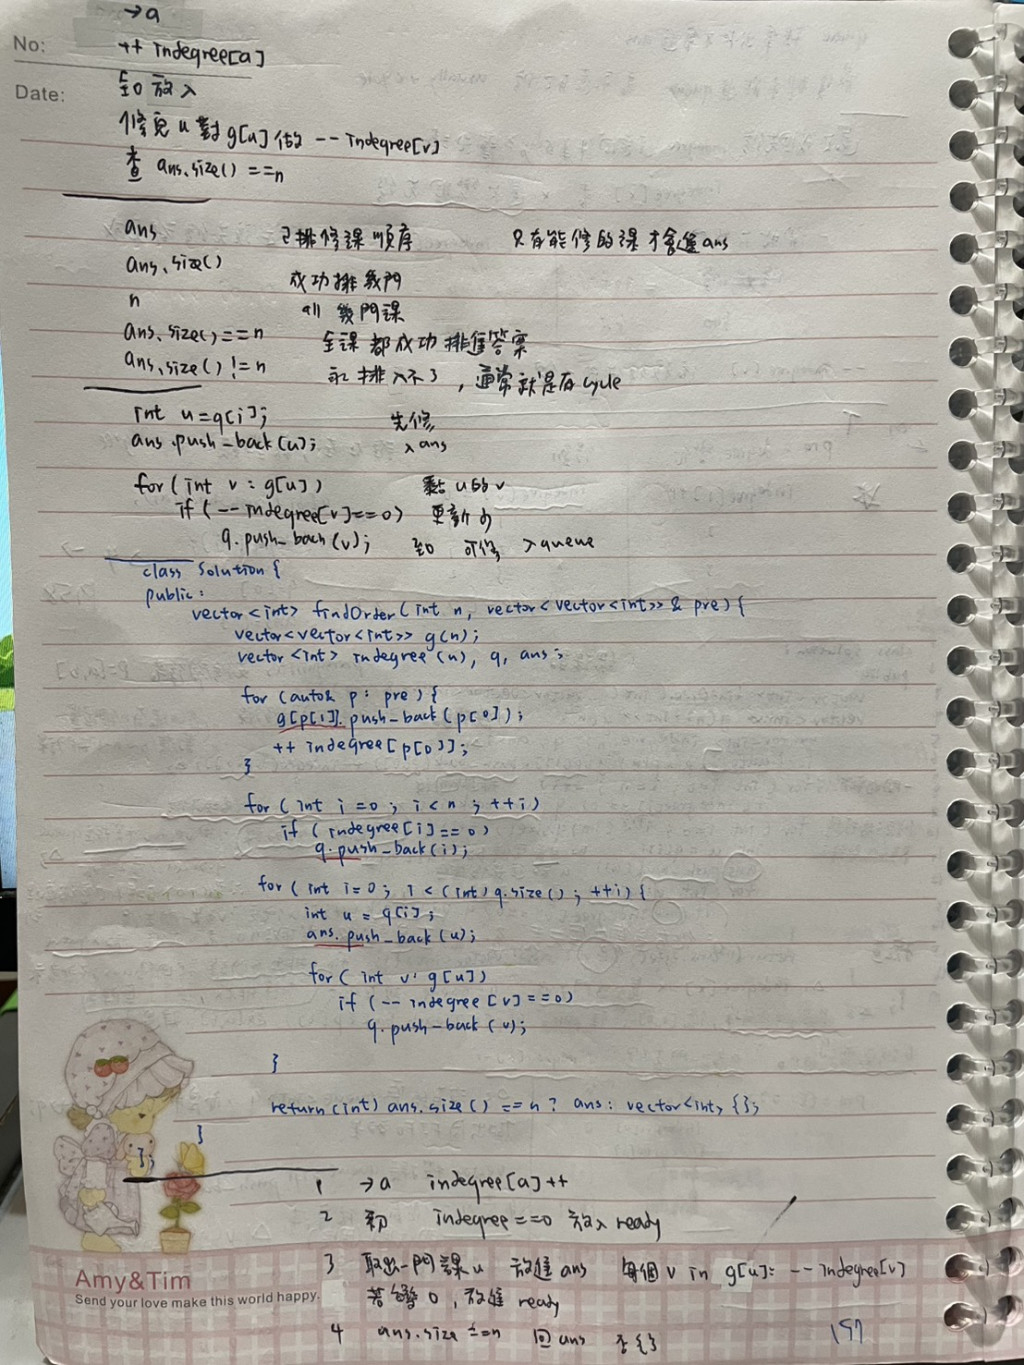 →a
No:
++ indegree[a]
Date:
到0 放入
修完 u 對 g[u] 做 --indegree[v]
查 ans.size() ==n
ans 已排修課順序 只有能修的課才會進ans
ans.size() 成功排幾門
n all 幾門課
ans.size()==n 全課都成功排進答案
ans.size() != n 永排入不了,通常就是有cycle
int u=q[i]; 先修
ans.push_back(u); 入ans
for(int v : g[u]) 黏u的v
if(--indegree[v]==0) 更新
q.push_back(v); 到0 可修 入queue
class Solution{
public:
vector<int> findOrder(int n, vector<vector<int>>& pre){
vector<vector<int>> g(n);
vector<int> indegree(n), q, ans;
for (auto& p : pre){
g[p[1]].push_back(p[0]);
++ indegree[p[0]];
}
for (int i=0; i<n; ++i)
if (indegree[i]==0)
q.push_back(i);
for (int i=0; i<(int)q.size(); ++i){
int u = q[i];
ans.push_back(u);
for( int v: g[u])
if (--indegree[v]==0)
q.push-back(v);
}
return(int) ans.size() ==n? ans: vector<int>{};
}
};
1 →a indegree[a]++
2 初 indegree==0 放入 ready
3 取出一門課u 放進ans 每個 v in g[u]: --indegree[v]
若變0,放進 ready
4 ans.size ==n 回ans 否{}
Amy&Tim
Send your love make this world happy.
197